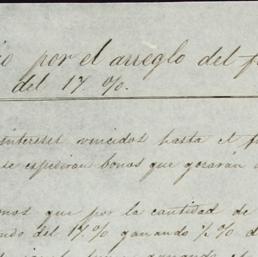 por el arreglo del
del 17 %.
intereses vencidos hasta el
se espediran bonos que gozaran
que por la cantidad de
del 17 % ganando ½ %